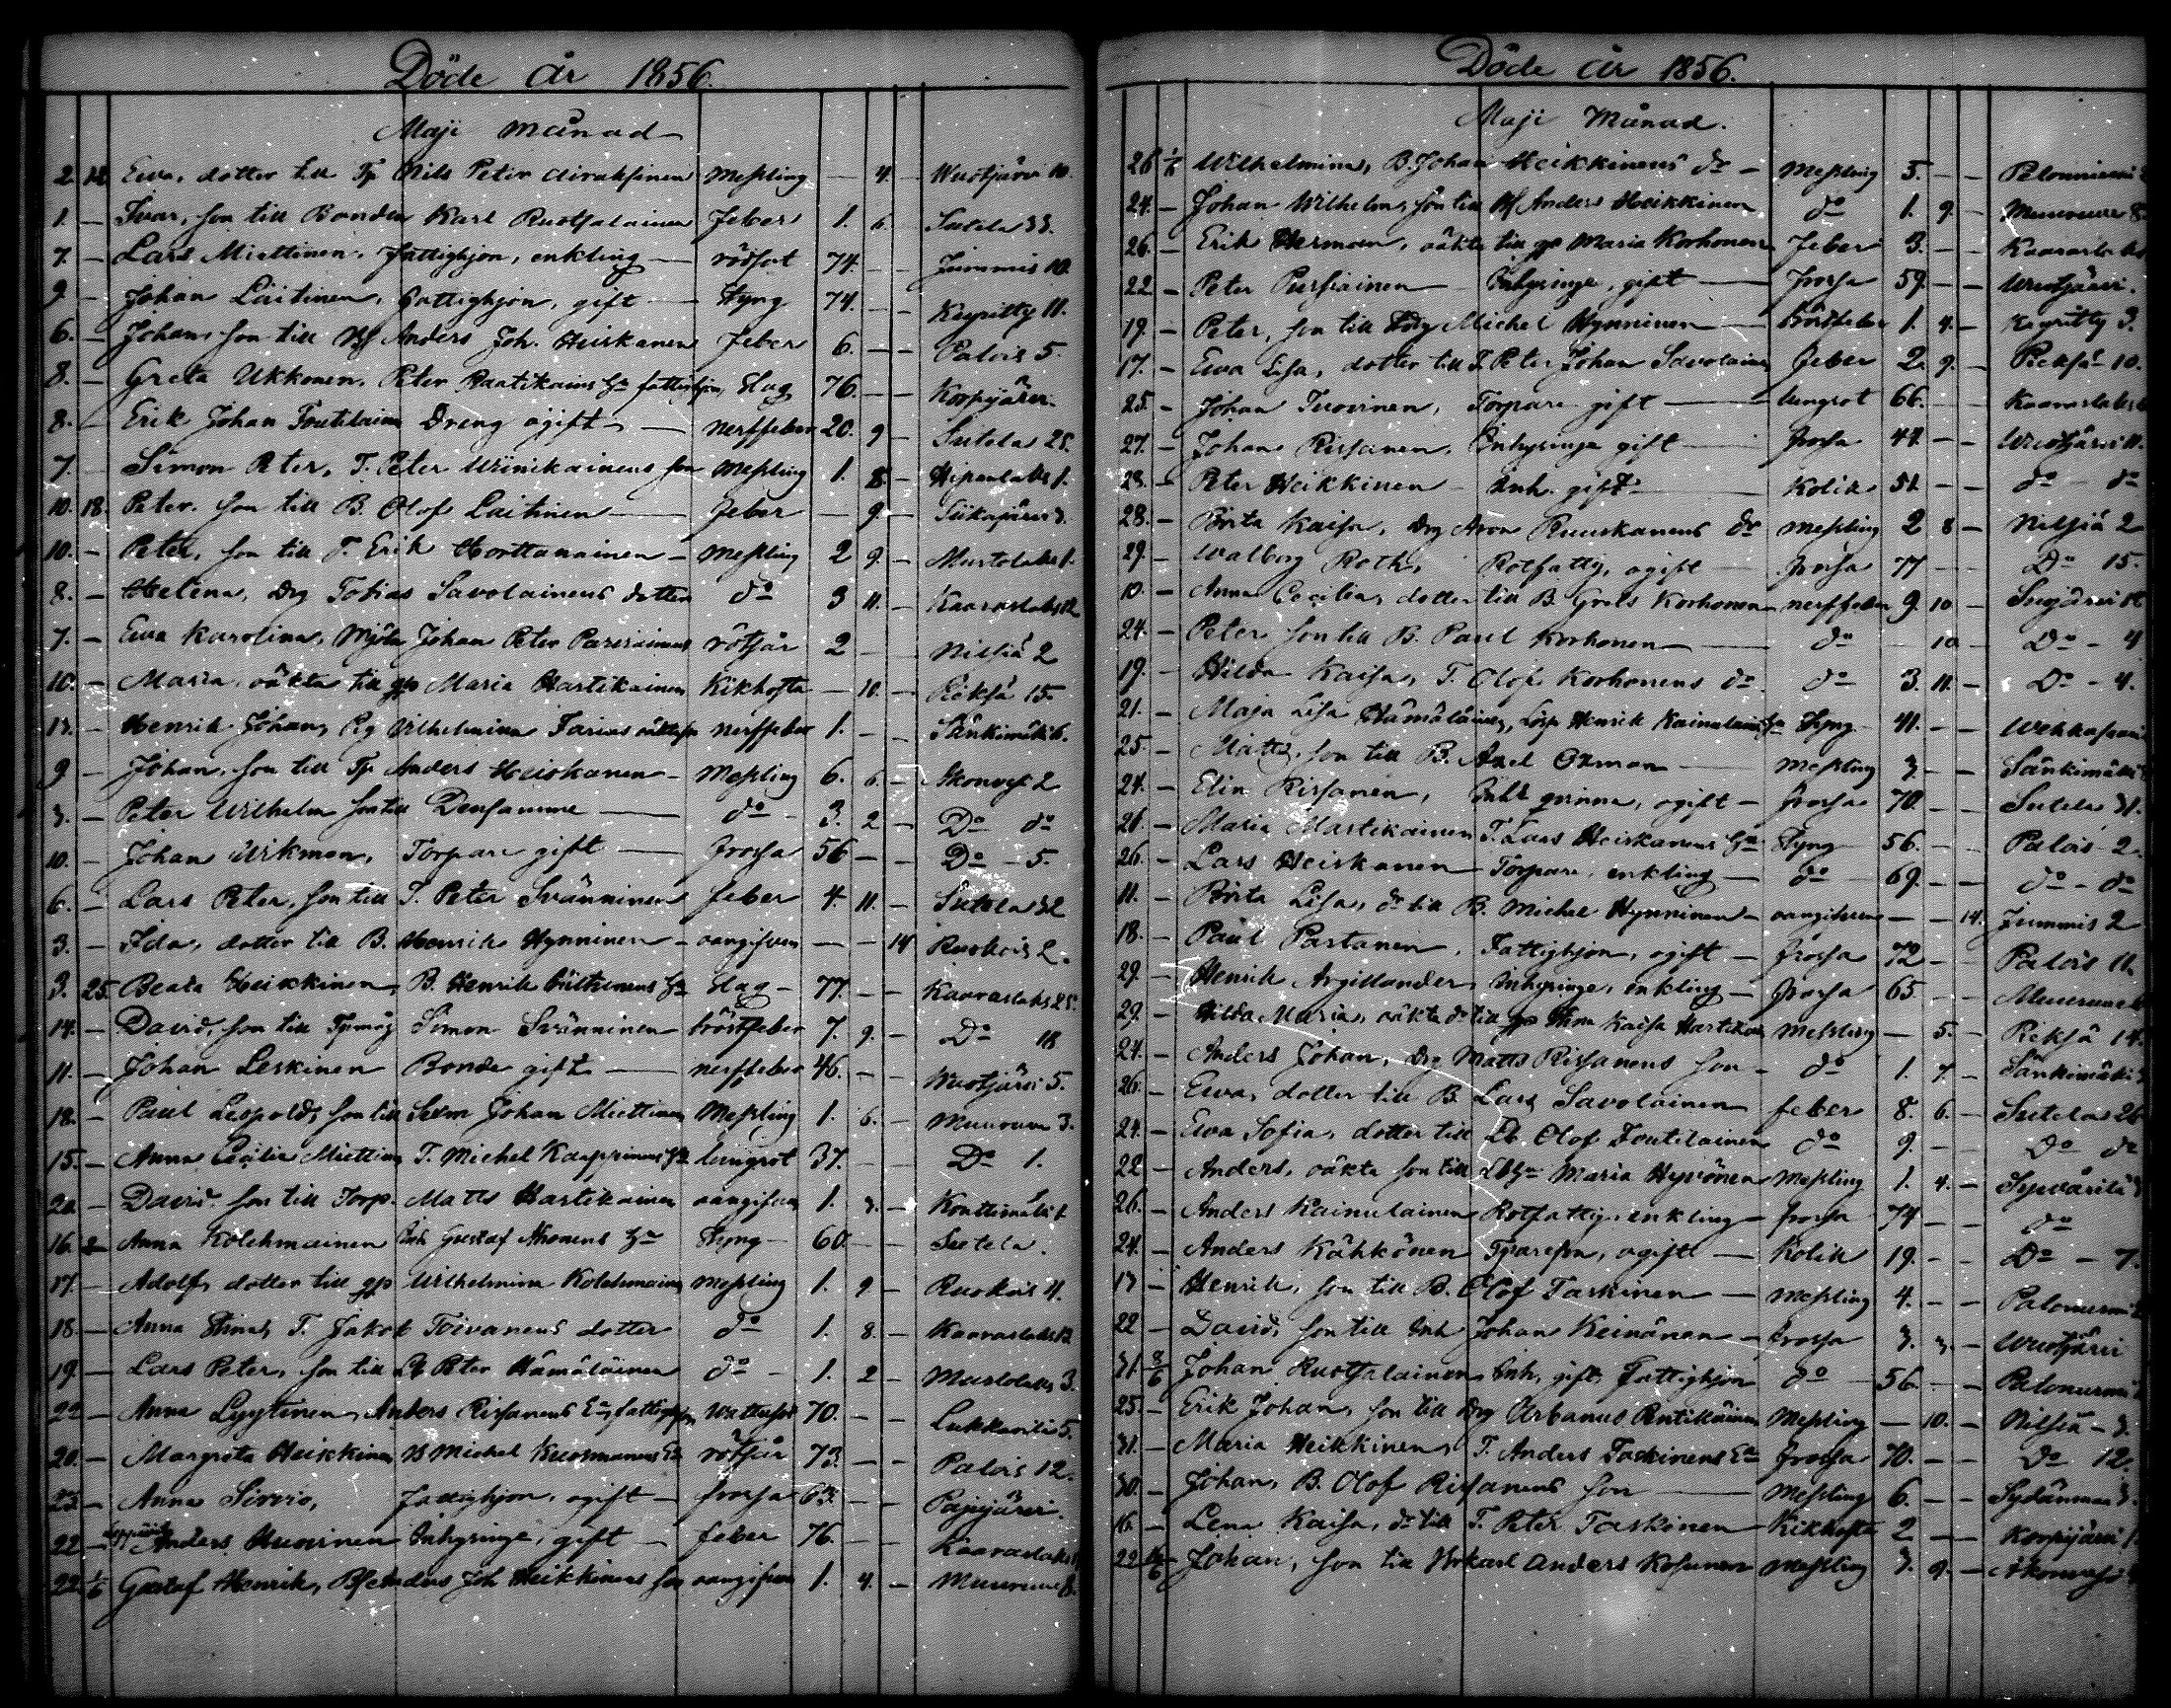 Döde år 1856.
Maji månad
2 12 Ewa, dotter till Tp Nils Peter Airaksinen Meßling — 4. — Wuotjärvi 10.
1. — Ivar, son till Bonden Karl Ruotsalainen Feber 1. 6. Sutela 33.
7. — Lars Miettinen, fattighjon, enkling — rödsot 74. — — Jummis 10.
9. — Johan Laitinen, Fattighjon, gift — Styng 74. — — Keyritty 11.
6. — Johan, son till Bf Anders Joh. Heiskanen Feber 6. — — Palois 5.
8. — Greta Ukkonen, Peter Raatikains Ha fattighjon, Slag 76. — — Korpijärvi.
8. — Erik Johan Toutilainen Dreng ogift — nerffeber 20. 9 — Sutela 25.
7. — Simon Peter, T. Peter Wänikainens son Meßling 1. 8. — Hipanlaks 1.
10. 18. Peter, son till B. Olof Laitinen — Feber — 9. — Siikajärvi 3.
10. — Peter, son till T. Erik Horttanainen — Meßling 2 9. — Murtolaks 1.
8. — Helena, Drg Tobias Savolainens dotter do 3 11. — Kaaraslaks 12
7. — Ewa Karolina, Mjöln Johan Peter Parsiainens rötsår 2 — Nilsiä 2
10. — Maria, oäkta till gp Maria Hartikainen Kikhosta — 10. — Reksä 15.
13. — Henrik Johan, Pig Wilhelmina Farias oäkta son nerffeber 1. — — Sänkimäki 6.
9. — Johan, son till Tp Anders Heiskanen — Meßling 6. 6. — Akonvesi 2
3. — Peter Wilhelm son till Densamme — do — 3. 2 — Do do
10. — Johan Urkman, Torpare gift — Frossa 56 — — Do — 5.
6. — Lars Peter, son till T. Peter Svänninen Feber 4 11. — Sutela 32
3. — Ida, dotter till B. Henrik Hynninen — oangifven — — 14 Ruokois 2.
3. 25. Beata Heikkinen, B. Henrik Hultinens Ha Slag — 77. — — Kaaraslaks 25.
14. — David, son till Tpmåg Simon Svänninen bröstfeber 7. 9. — Do 18
11. — Johan Leskinen Bonde gift — nerffeber 46. — — Wuotjärvi 5.
18. — Paul Leopold, son till Johan Miettinen Meßling 1. 6. — Muuruvesi 3.
15. — Anna Cecilia Miettinen T. Michel Kaappinens Ha lungsot 37. — — Do 1.
20 — David, son till Torp. Matts Hartikainen oangifven 1. 3. — Konttimäki
16. 2 Anna Kolehmainen Inh Gustaf Ahonens Ha Styng — 60 — Sutela.
17. — Adolf, dotter till gp Wilhelmina Kolehmainen Meßling 1. 9 — Ruokois 4.
18. — Anna Stina, T. Jakob Toivanens dotter do 1. 8. — Kaaraslaks 12
19. — Lars Peter, son till Lb Peter Hämäläinen do — 1. 2 — Murtolaks 3.
22 — Anna Lyytinen, Anders Rissanens Ea, fattighjon Wattusot 70. — — Lukkarila 5.
20. — Margreta Heikkinen, B Michel Kuosmanens Ea rötsår 73. — — Palois 12.
23. — Anna Sirviö, Fattighjon, ogift — Frossa 63. — — Pajujärvi.
22 — Anders Huovinen Inhysinge, gift — Feber 76. — — Kaaraslaks
22. 1/6 Gustaf Henrik, Bf Anders Joh Heikkinens son oangifven 1. 4. — Muuruvesi 8.
Döde år 1856.
Maji Månad.
26 1/6 Wilhelmina, B. Johan Heikkinens dr — Meßling 5. — — Palonniemi
24. — Johan Wilhelm, son till Bf Anders Heikkinen do 1. 9. — Muuruvesi 8
26. — Erik Herman, oäkta till gp Maria Korhonen Feber 3. — — Kaaraslaks
22 — Peter Pursiainen — Inhysinge, gift — Frossa 59. — — Wuotjärvi.
19. — Peter, son till Drg Michel Hynninen — bröstfeber 1. 4. — Keyritty 3.
17. — Ewa Lisa, dotter till T. Peter Johan Savolainen Feber 2. 9. — Reksä 10.
25. — Johan Tuovinen, Torpare gift — lungsot 66. — Kaaraslaks
27. — Johan Rissanen, Inhysinge gift — Frossa 44 — — Wuotjärvi 11.
23. — Peter Heikkinen — Inh. gift — Kolik 51. — — do — do
28. — Brita Kaisa, Drg Aron Ruuskanens dr Meßling 2 8 — Nilsiä 2
29. — Walborg Roth, Rotfattig, ogift — Frossa 77 — Do 15.
13. — Anna Cecilia, dotter till B. Grels Korhonen nerffeber 9. 10 — Sujärvi 10
24. — Peter son till B. Paul Korhonen — do 10 — Do — 4
19. — Hilda Kaisa, T. Olof Korhonens dr. do 3. 11. — Do — 4.
21. — Maja Lisa Hämäläinen, Lösp Henrik Kainulainens Ha Styng 41. — — Wehkasaari
25. — Matts, son till B. Axel Oxman — Meßling 3. — — Sänkimäki
24. — Elin Rissanen, Inhqvinna, ogift — Frossa 70. — — Sutela 31.
26. — Maria Martikainen T. Lars Heiskanens Ha Styng 56. — — Palois 2
26. — Lars Heiskanen — Torpare, enkling — do 69. — — do — do
11. — Brita Lisa, dr till B. Michel Hynninen — oangifven — — 14. Jummis 2
18. — Paul Partanen, Fattighjon, ogift — Frossa 72 — — Palois 11.
29. — Henrik Argillander, Inhysinge, enkling — Frossa 65. — — Muuruvesi
29. — Hilda Maria, oäkta dr till gp Anna Kaisa Hartikainen Meßling — 5. — Reksä 14.
24. — Anders Johan, Drg Matts Rissanens son — do 1. 7. — Sänkimäki
26. — Ewa, dotter till B. Lars Savolainen Feber 8. 6. — Sutela 26
24. — Ewa Sofia, dotter till Lb Olof Toutilainen do 9. — Do do
22 — Anders, oäkta son till LbHa Maria Hyvönen Meßling 1. 4. — Syvärilä
26. — Anders Kainulainen Rotfattig, enkling — Frossa 74 — — do
24. — Anders Kähkönen Tparesn, ogift — Kolik 19. — — Do — 7.
13 — Henrik, son till B. Olof Taskinen — Meßling 4. — — Palonurmi
22 — David, son till Inh Johan Keinänen — Frossa 3. 3. — Wuotjärvi
31. 8/6 Johan Ruotsalainen, Inh, gift, Fattighjon do 56 — — Palonurmi
25. — Erik Johan, son till Drg Urbanus Pentikäinen Meßling — 10. — Nilsiä — 3.
31. — Maria Heikkinen, T. Anders Taskinens Ea Frossa 70. — — Do 12.
30. — Johan, B. Olof Rissanens son — Meßling 6. — — Sydänmaa 3.
16. — Lena Kaisa, dr till T. Peter Taskinen — Kikhosta 2 — — Korpijärvi
22 Johan, son till Anders Kosunen Meßling 3. 9. — Akonvesi